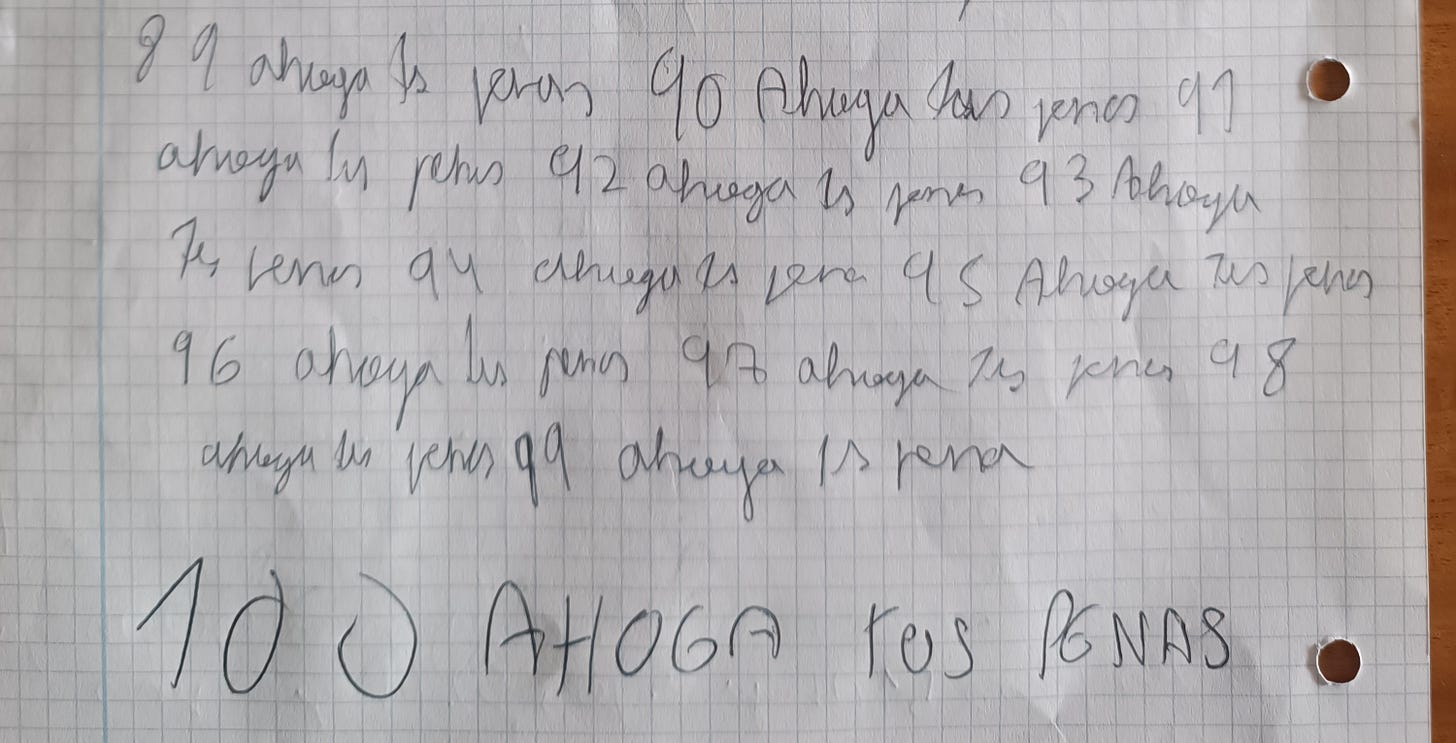 89 ahoga ts penas 90 Ahoga tus penas 91
ahoga tus penas 92 ahoga ts penas 93 Ahoga
Tus penas 94 ahoga ts pena 95 Ahoga Tus penas
96 ahoga tus penas 97 ahoga Tus penas 98
ahoga tus penas 99 ahoga ts pena
100 AHOGA tus PENAS